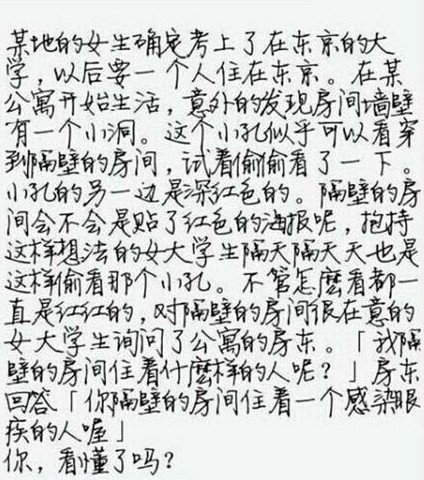 某地的女生确定考上了在东京的大
学，以后要一个人住在东京。在某
公寓开始生活，意外的发现房间墙壁
有一个小洞。这个小孔似乎可以看穿
到隔壁的房间，试着偷偷看了一下。
小孔的另一边是深红色的。隔壁的房
间会不会是贴了红色的海报呢，抱持
这样想法的女大学生隔天隔天天也是
这样偷看那个小孔。不管怎麽看都一
直是红红的，对隔壁的房间很在意的
女大学生询问了公寓的房东。「我隔
壁的房间住着什麽样的人呢？」房东
回答「你隔壁的房间住着一个感染眼
疾的人喔」
你，看懂了吗？